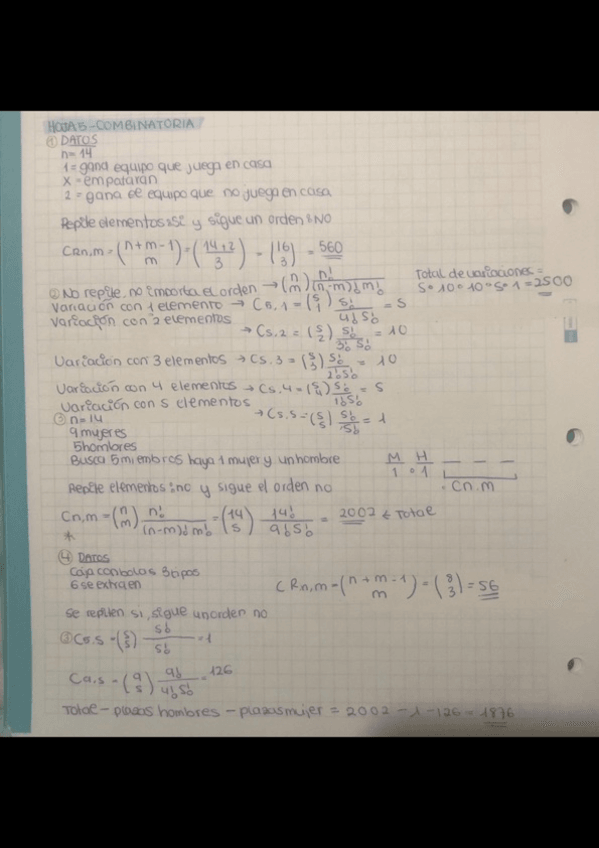 HOJA 5 - COMBINATORIA
① DATOS
n=14
1 = gana equipo que juega en casa
X = empataran
2 = gana el equipo que no juega en casa
Repite elementos: Si y sigue un orden: NO
CRn,m = (n+m-1 / m) = (14+2 / 3) = (16 / 3) = 560
② No repite, no importa el orden → (n / m) n! / (n-m)! m!
Total de variaciones =
5·10·10·5·1 = 2500
Variación con 1 elemento → C5,1 = (5 / 1) 5! / 4! 5! = 5
Variación con 2 elementos
→ C5,2 = (5 / 2) 5! / 3! 5! = 10
Variación con 3 elementos → C5,3 = (5 / 3) 5! / 2! 5! = 10
Variación con 4 elementos → C5,4 = (5 / 4) 5! / 1! 5! = 5
Variación con 5 elementos
→ C5,5 = (5 / 5) 5! / 5! = 1
③ n=14
9 mujeres
5 hombres
Busca 5 miembros haya 1 mujer y un hombre
M H
1 · 1 — — —
· Cn,m
Repite elementos: no y sigue el orden no
Cn,m = (n / m) n! / (n-m)! m! = (14 / 5) 14! / 9! 5! = 2002 ← Total
*
④ DATOS
Caja con bolas 3 tipos
6 se extraen
CRn,m = (n+m-1 / m) = (8 / 3) = 56
Se repiten si, sigue un orden no
③ C5,5 = (5 / 5) 5! / 5! = 1
C9,5 = (9 / 5) 9! / 4! 5! = 126
Total - plazas hombres - plazas mujer = 2002 - 1 - 126 = 1876